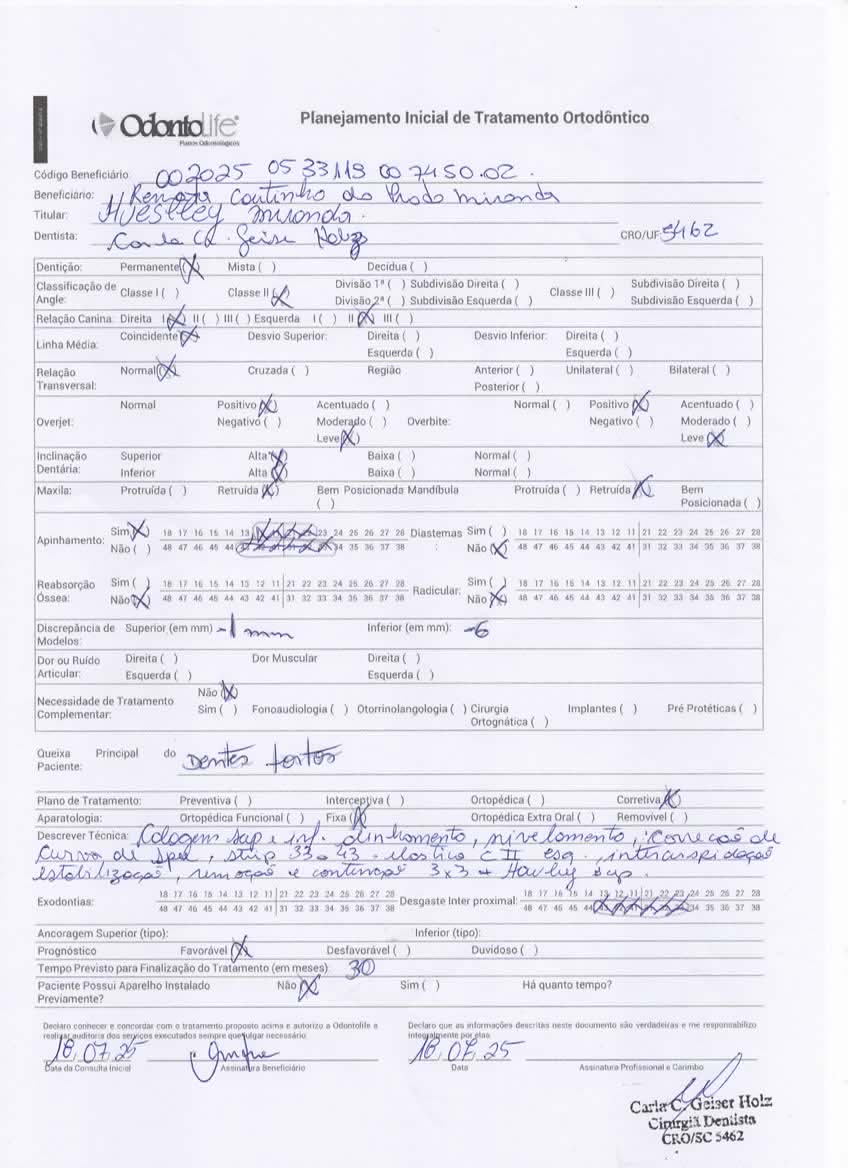 OdontoLife
Planos Odontológicos
Planejamento Inicial de Tratamento Ortodôntico
Código Beneficiário 002025 0533119 007450.02.
Beneficiário: Renata Coutinho do Prado Miranda
Titular: Miranda.
Dentista: Carla C. Geiser Holz CRO/UF 5462
Dentição: Permanente (X) Mista ( ) Decídua ( )
Classificação de Angle: Classe I ( ) Classe II (X) Divisão 1ª ( ) Subdivisão Direita ( ) Classe III ( ) Subdivisão Direita ( )
Divisão 2ª ( ) Subdivisão Esquerda ( ) Subdivisão Esquerda ( )
Relação Canina: Direita I (X) II ( ) III ( ) Esquerda I ( ) II (X) III ( )
Linha Média: Coincidente (X) Desvio Superior: Direita ( ) Desvio Inferior: Direita ( )
Esquerda ( ) Esquerda ( )
Relação Transversal: Normal (X) Cruzada ( ) Região Anterior ( ) Unilateral ( ) Bilateral ( )
Posterior ( )
Overjet: Normal Positivo (X) Acentuado ( ) Overbite: Normal ( ) Positivo (X) Acentuado ( )
Negativo ( ) Moderado ( ) Negativo ( ) Moderado ( )
Leve (X) Leve (X)
Inclinação Dentária: Superior Alta (X) Baixa ( ) Normal ( )
Inferior Alta (X) Baixa ( ) Normal ( )
Maxila: Protruída ( ) Retruída (X) Bem Posicionada ( ) Mandíbula Protruída ( ) Retruída (X) Bem Posicionada ( )
Apinhamento: Sim (X) 18 17 16 15 14 13 23 24 25 26 27 28 Diastemas: Sim ( ) 18 17 16 15 14 13 12 11 21 22 23 24 25 26 27 28
Não ( ) 48 47 46 45 44 34 35 36 37 38 Não (X) 48 47 46 45 44 43 42 41 31 32 33 34 35 36 37 38
Reabsorção Óssea: Sim ( ) 18 17 16 15 14 13 12 11 21 22 23 24 25 26 27 28 Radicular: Sim ( ) 18 17 16 15 14 13 12 11 21 22 23 24 25 26 27 28
Não (X) 48 47 46 45 44 43 42 41 31 32 33 34 35 36 37 38 Não (X) 48 47 46 45 44 43 42 41 31 32 33 34 35 36 37 38
Discrepância de Modelos: Superior (em mm) -1 mm Inferior (em mm): -6
Dor ou Ruído Articular: Direita ( ) Dor Muscular Direita ( )
Esquerda ( ) Esquerda ( )
Necessidade de Tratamento Complementar: Não (X)
Sim ( ) Fonoaudiologia ( ) Otorrinolangologia ( ) Cirurgia Ortognática ( ) Implantes ( ) Pré Protéticas ( )
Queixa Principal do Paciente: Dentes tortos
Plano de Tratamento: Preventiva ( ) Interceptiva ( ) Ortopédica ( ) Corretiva (X)
Aparatologia: Ortopédica Funcional ( ) Fixa (X) Ortopédica Extra Oral ( ) Removivel ( )
Descrever Técnica: Colagem sup e inf. alinhamento, nivelamento, correção de
curva de spee, strip 33 a 43. elastico C II esq., intercuspidação
estabilização, remoção e contenção 3x3 + Hawley sup.
Exodontias: 18 17 16 15 14 13 12 11 21 22 23 24 25 26 27 28 Desgaste Inter proximal: 18 17 16 15 14 13 12 11 21 22 23 24 25 26 27 28
48 47 46 45 44 43 42 41 31 32 33 34 35 36 37 38 48 47 46 45 44 34 35 36 37 38
Ancoragem Superior (tipo): Inferior (tipo):
Prognóstico Favorável (X) Desfavorável ( ) Duvidoso ( )
Tempo Previsto para Finalização do Tratamento (em meses) 30
Paciente Possui Aparelho Instalado Previamente? Não (X) Sim ( ) Há quanto tempo?
Declaro conhecer e concordar com o tratamento proposto acima e autorizo a Odontolife a Declaro que as informações descritas neste documento são verdadeiras e me responsabilizo
realizar auditoria dos serviços executados sempre que julgar necessário integralmente por elas
18.07.25 18.07.25
Data da Consulta Inicial Assinatura Beneficiário Data Assinatura Profissional e Carimbo
Carla C. Geiser Holz
Cirurgiã Dentista
CRO/SC 5462